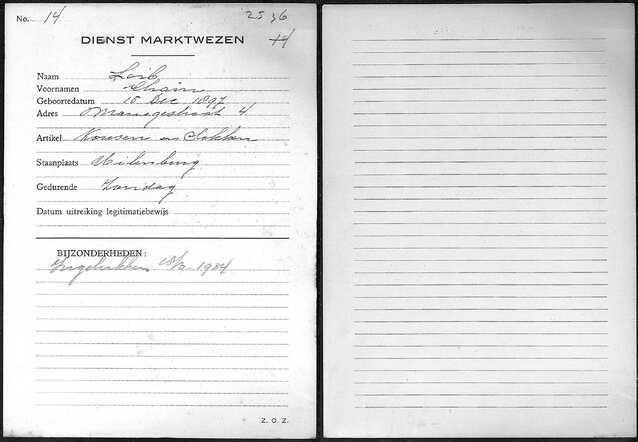 No. 14 25 36
14
DIENST MARKTWEZEN
Naam Loib
Voornamen Chaim
Geboortedatum 15 Dec 1897
Adres Manegestraat 4
Artikel Kousen en Sokken
Staanplaats Uilenburg
Gedurende Zondag
Datum uitreiking legitimatiebewijs
BIJZONDERHEDEN:
Ingetrokken 1934
Z. O. Z.